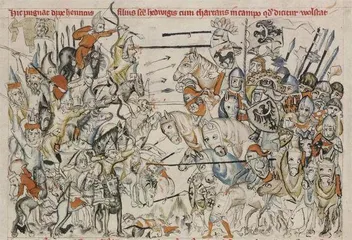 Hic pugnat dux heinricus filius sce hedwigis cum thartaris in campo qd dicitur wolstat